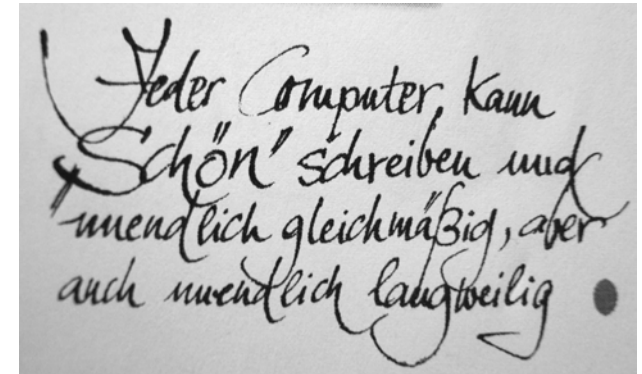 Jeder Computer, kann
"Schön" schreiben und
unendlich gleichmäßig, aber
auch unendlich langweilig